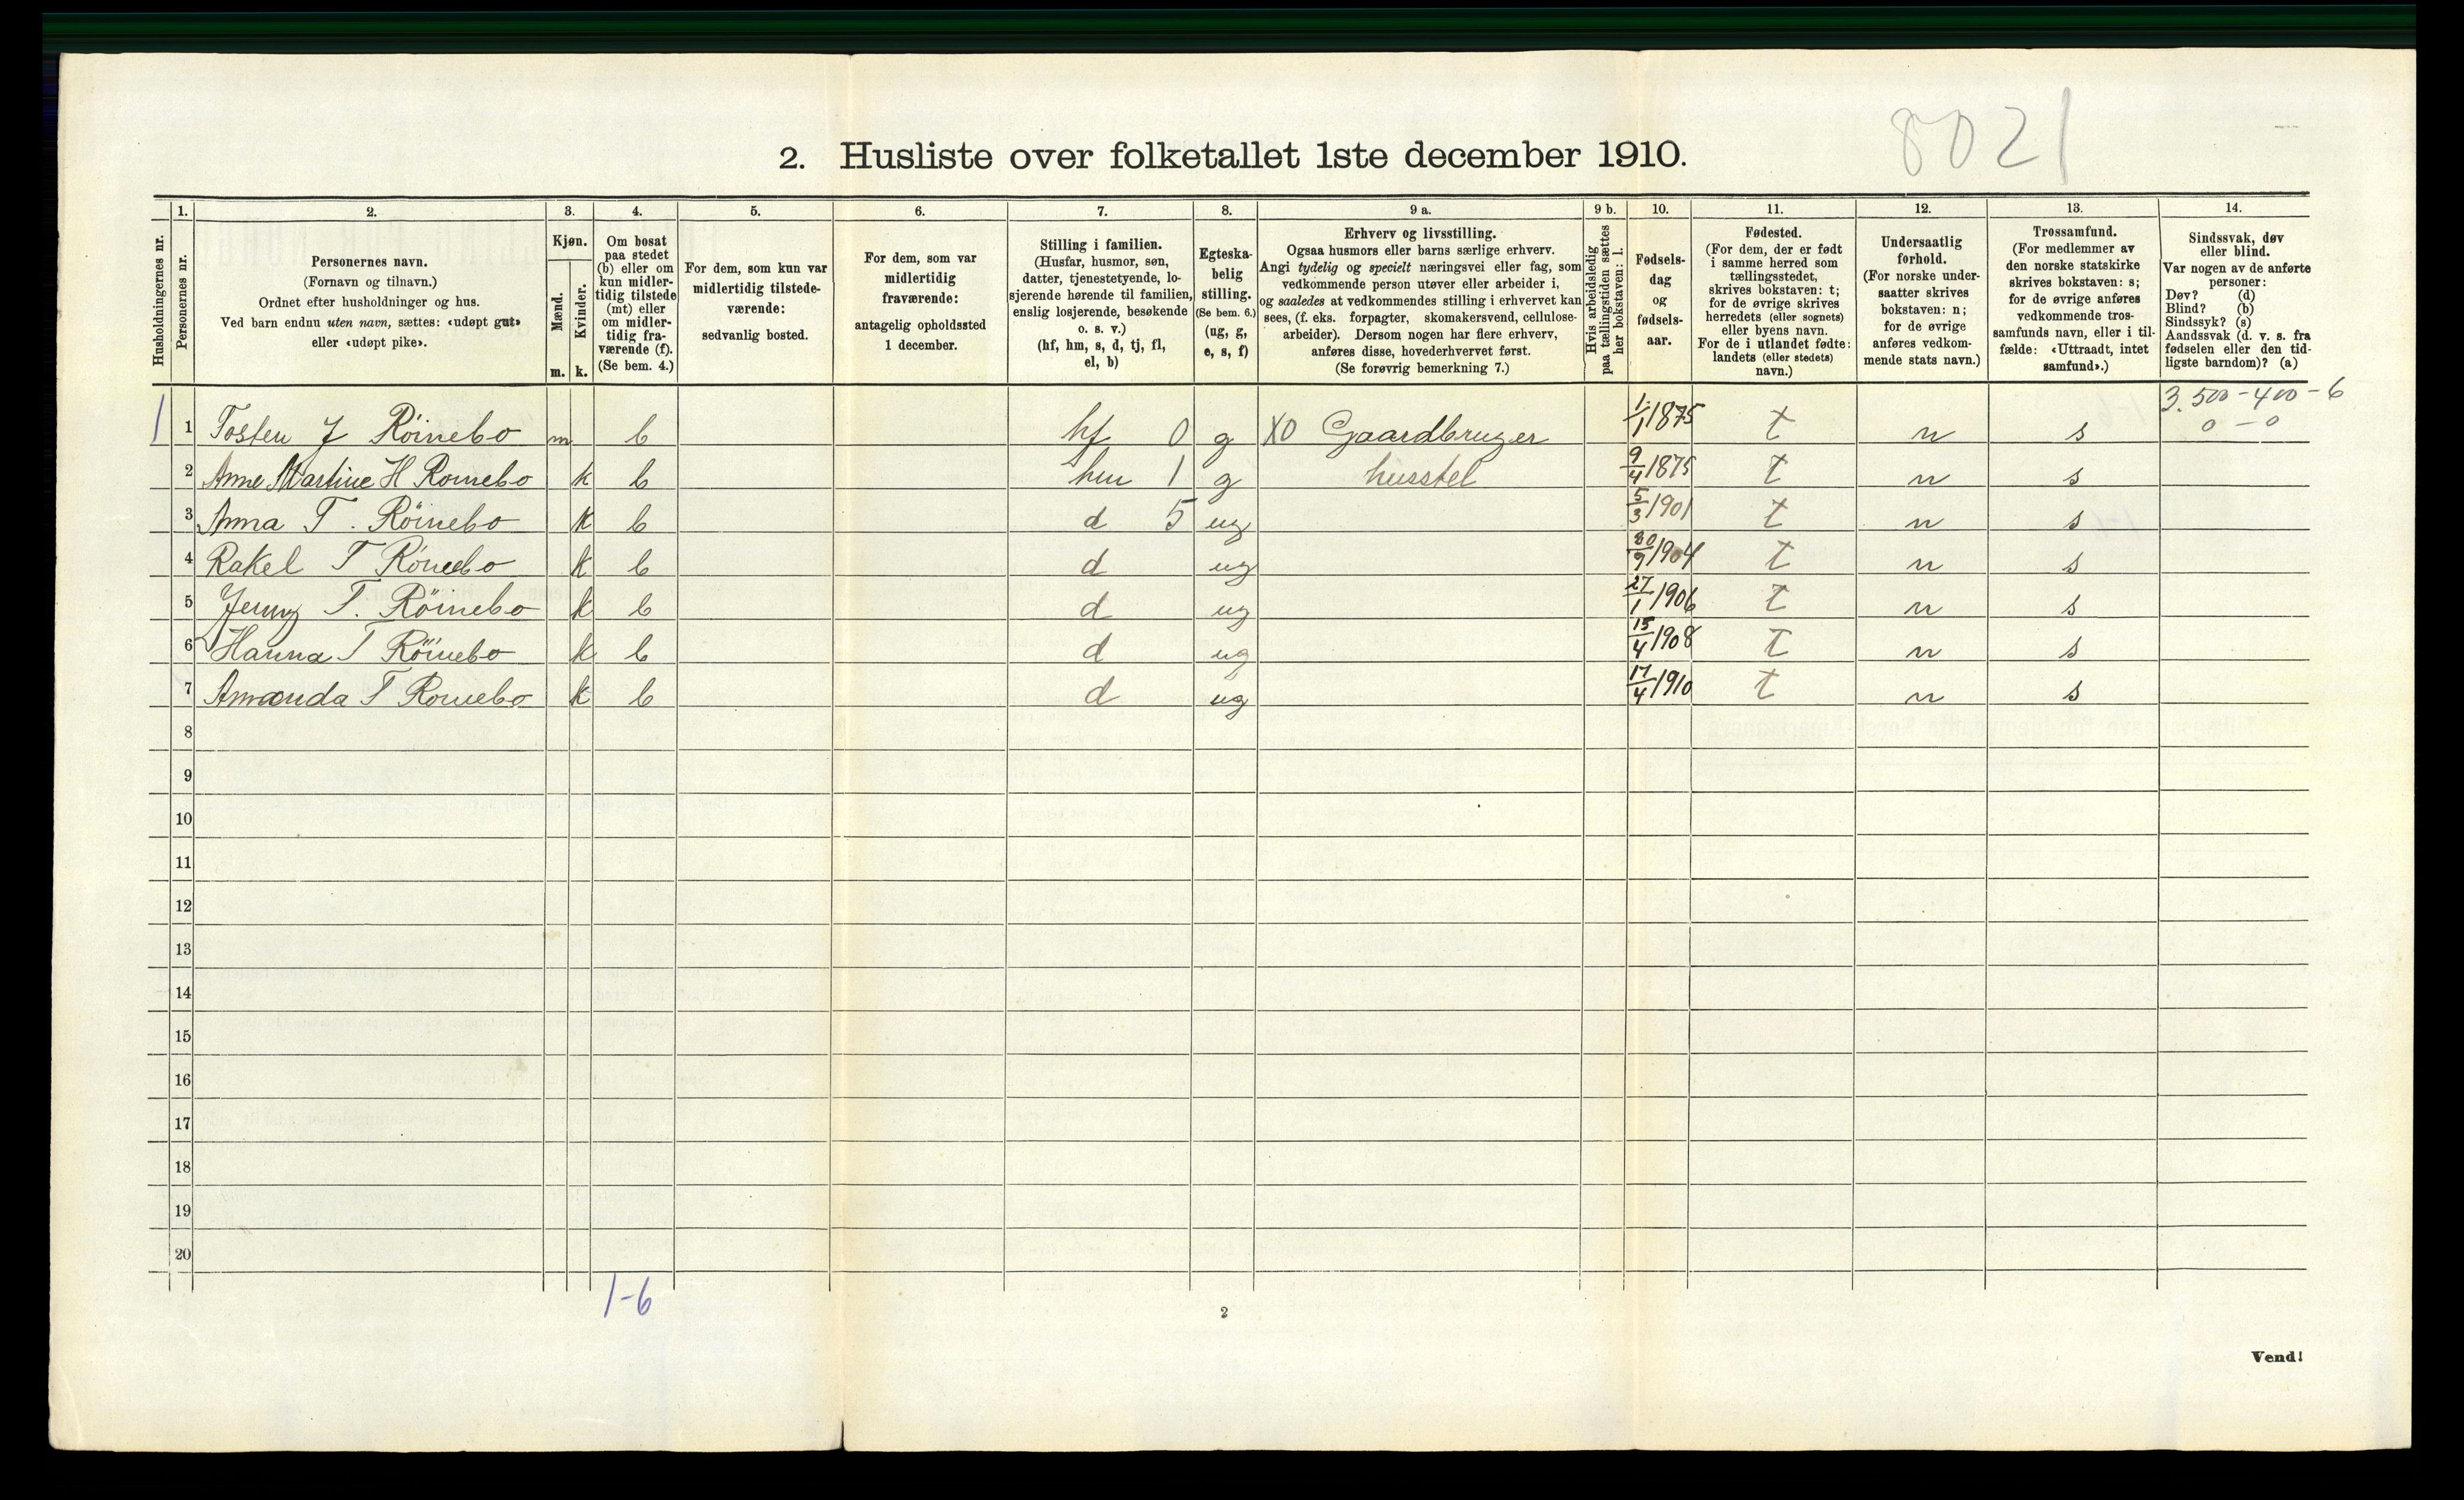 8021
2. Husliste over folketallet 1ste december 1910.
Husholdningernes nr.
1. Personernes nr.
2. Personernes navn.
(Fornavn og tilnavn.)
Ordnet efter husholdninger og hus.
Ved barn endnu uten navn, sættes: «udøpt gut»
eller «udøpt pike».
3. Kjøn.
Mænd. m.
Kvinder. k.
4. Om bosat
paa stedet
(b) eller om
kun midler-
tidig tilstede
(mt) eller
om midler-
tidig fra-
værende (f).
(Se bem. 4.)
5. For dem, som kun var
midlertidig tilstede-
værende:
sedvanlig bosted.
6. For dem, som var
midlertidig
fraværende:
antagelig opholdssted
1 december.
7. Stilling i familien.
(Husfar, husmor, søn,
datter, tjenestetyende, lo-
sjerende hørende til familien,
enslig losjerende, besøkende
o. s. v.)
(hf, hm, s, d, tj, fl,
el, b)
8. Egteska-
belig
stilling.
(Se bem. 6.)
(ug, g,
e, s, f)
9 a. Erhverv og livsstilling.
Ogsaa husmors eller barns særlige erhverv.
Angi tydelig og specielt næringsvei eller fag, som
vedkommende person utøver eller arbeider i,
og saaledes at vedkommendes stilling i erhvervet kan
sees, (f. eks. forpagter, skomakersvend, cellulose-
arbeider). Dersom nogen har flere erhverv,
anføres disse, hovederhvervet først.
(Se forøvrig bemerkning 7.)
9 b. Hvis arbeidsledig
paa tællingstiden sættes
her bokstaven: l.
10. Fødsels-
dag
og
fødsels-
aar.
11. Fødested.
(For dem, der er født
i samme herred som
tællingsstedet,
skrives bokstaven: t;
for de øvrige skrives
herredets (eller sognets)
eller byens navn.
For de i utlandet fødte:
landets (eller stedets)
navn.)
12. Undersaatlig
forhold.
(For norske under-
saatter skrives
bokstaven: n;
for de øvrige
anføres vedkom-
mende stats navn.)
13. Trossamfund.
(For medlemmer av
den norske statskirke
skrives bokstaven: s;
for de øvrige anføres
vedkommende tros-
samfunds navn, eller i til-
fælde: «Uttraadt, intet
samfund».)
14. Sindssvak, døv
eller blind.
Var nogen av de anførte
personer:
Døv? (d)
Blind? (b)
Sindssyk? (s)
Aandssvak (d. v. s. fra
fødselen eller den tid-
ligste barndom)? (a)
3.500-400-6
0-0
1 1 Tosten J Röinebo m b hf 0 g X0 Gaardbruger 1/1 1875 t n s
2 Anne Martine H Roinebo k b hm 1 g husstel 9/4 1875 t n s
3 Anna T. Röinebo k b d 5 ug 5/3 1901 t n s
4 Rakel T Röinebo k b d ug 30/9 1904 t n s
5 Jenny T. Röinebo k b d ug 27/1 1906 t n s
6 Hanna T Röinebo k b d ug 15/4 1908 t n s
7 Amanda T Roinebo k b d ug 17/4 1910 t n s
8
9
10
11
12
13
14
15
16
17
18
19
20
1-6
2
Vend!